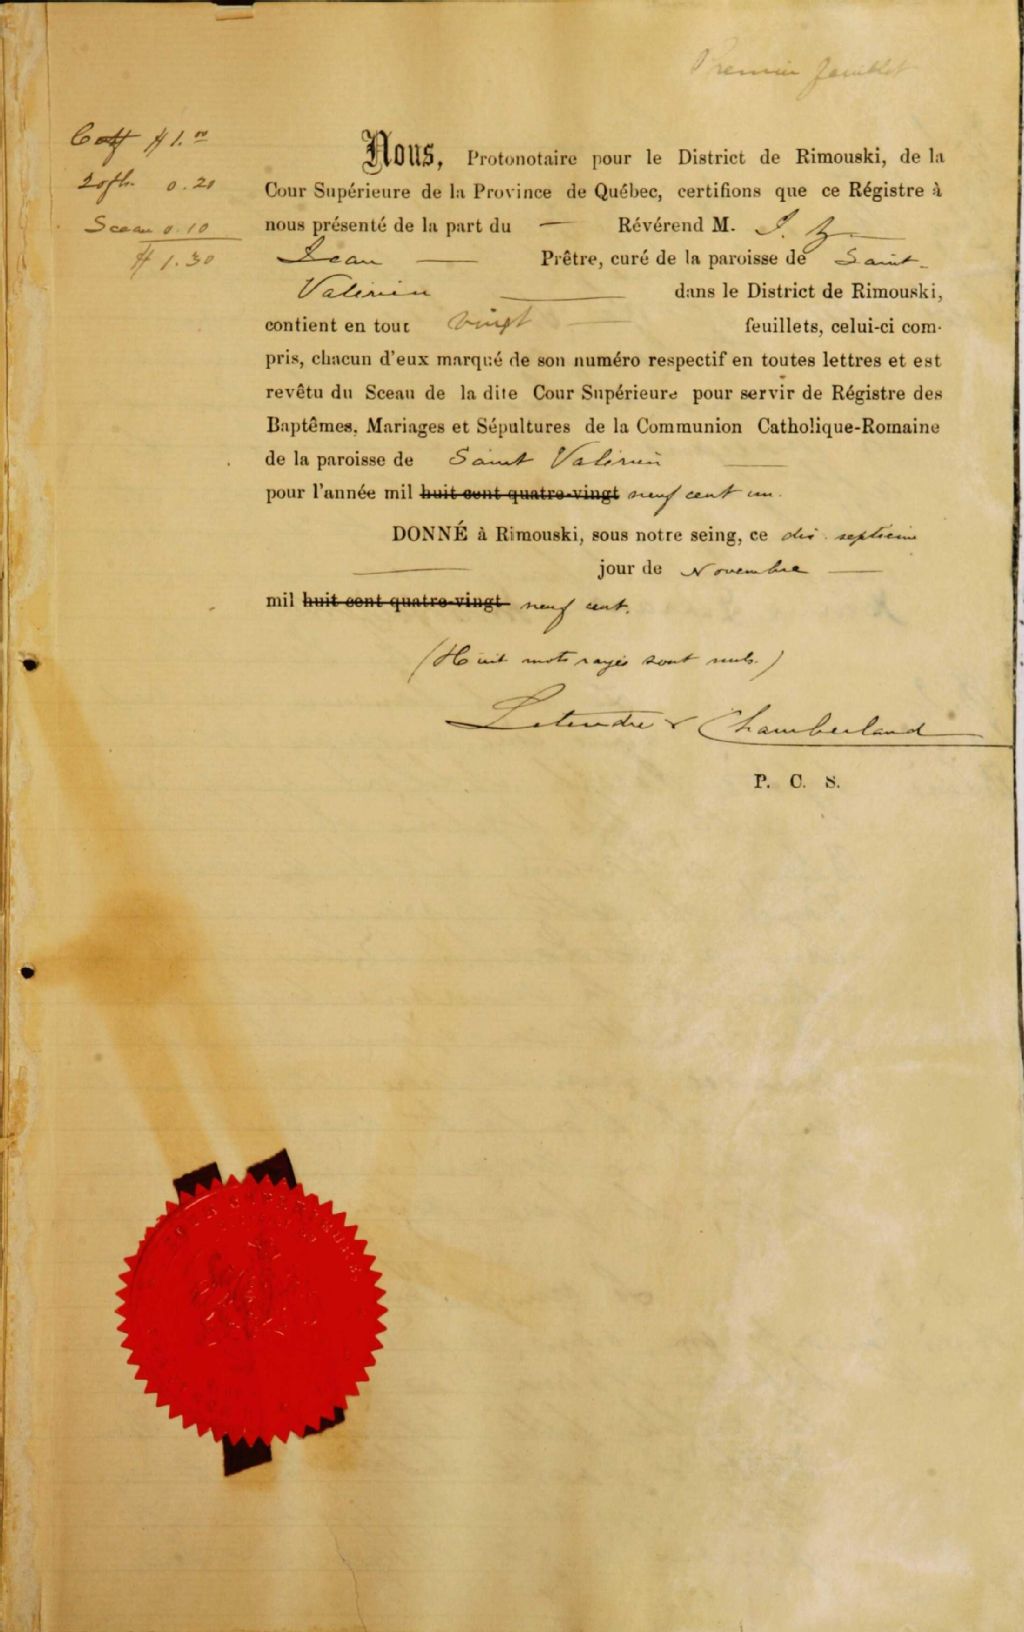 Premier feuillet
$1.00
20 fts. 0.20
Sceau 0.10
$1.30
Nous, Protonotaire pour le District de Rimouski, de la
Cour Supérieure de la Province de Québec, certifions que ce Régistre à
nous présenté de la part du — Révérend M. J.
Jean — Prêtre, curé de la paroisse de Saint-
Valérien — dans le District de Rimouski,
contient en tout vingt — feuillets, celui-ci com-
pris, chacun d'eux marqué de son numéro respectif en toutes lettres et est
revêtu du Sceau de la dite Cour Supérieure pour servir de Régistre des
Baptêmes, Mariages et Sépultures de la Communion Catholique-Romaine
de la paroisse de Saint Valérien —
pour l'année mil huit cent quatre-vingt neuf cent un.
DONNÉ à Rimouski, sous notre seing, ce dix septième
— jour de Novembre —
mil huit cent quatre-vingt neuf cent.
(Huit mots rayés sont nuls.)
Letendre & Chamberland
P. C. S.